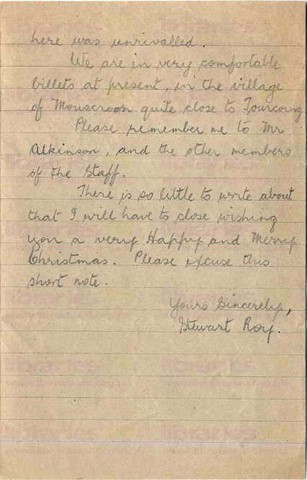 here was unrivalled.
We are in very comfortable
billets at present, in the village
of Mouscroon quite close to Tourcoing
Please remember me to Mr
Atkinson, and the other members
of the Staff.
There is so little to write about
that I will have to close wishing
you a very Happy and Merry
Christmas. Please excuse this
short note.
Yours Sincerely,
Stewart Rory.